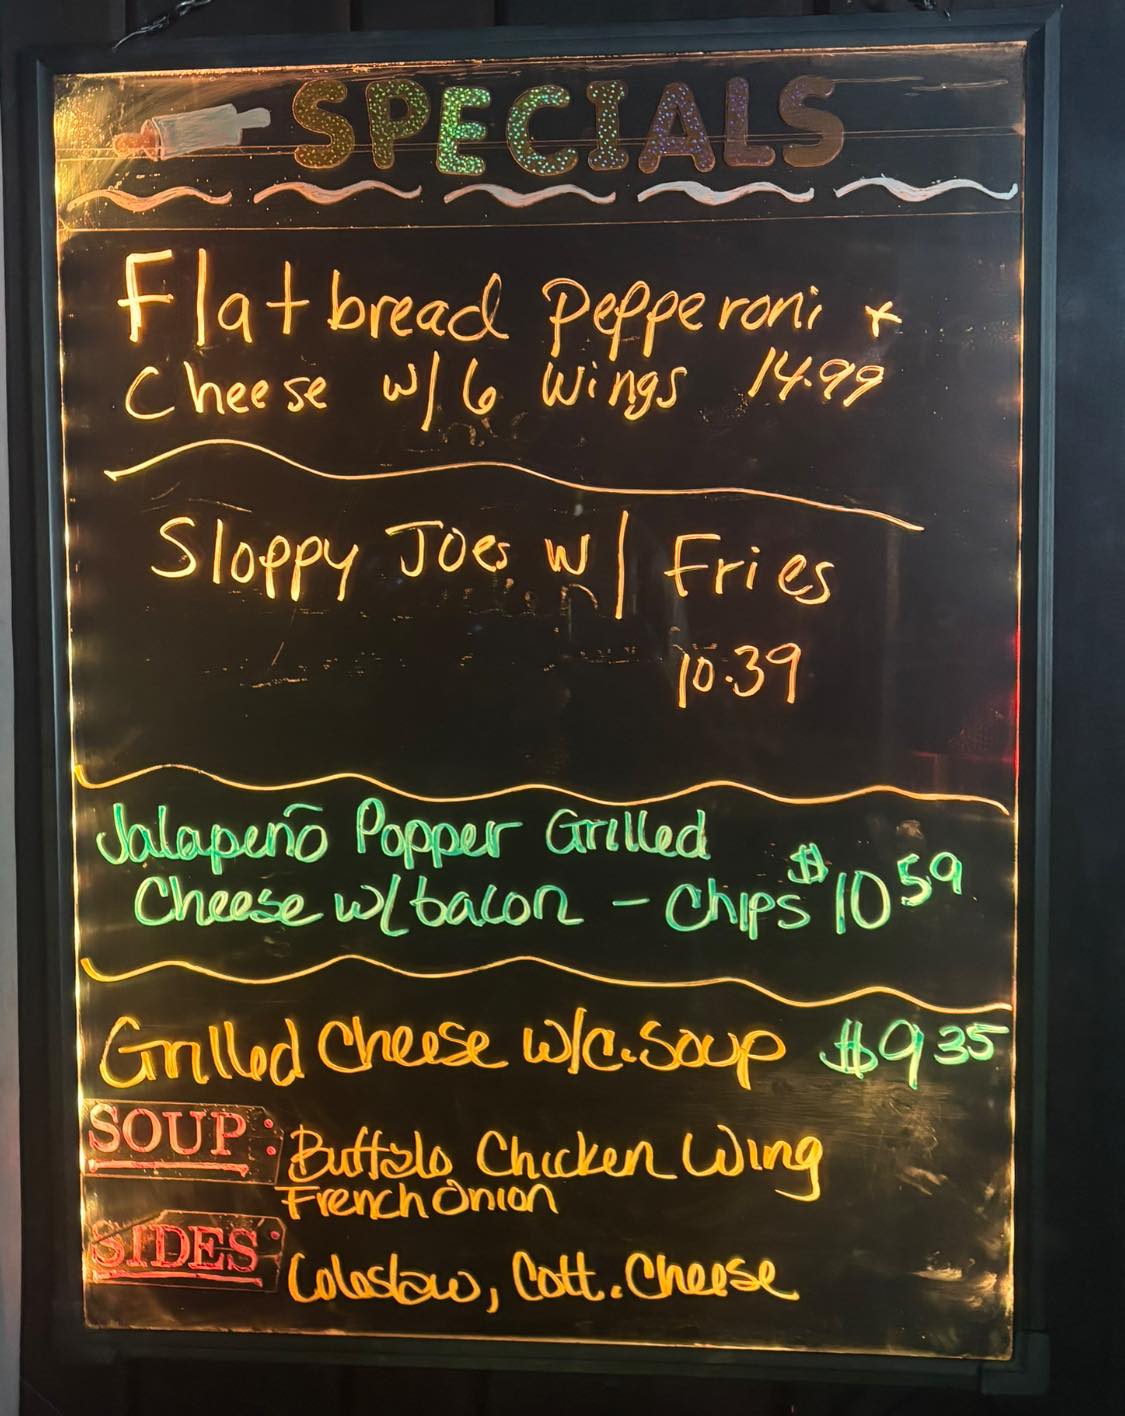 SPECIALS
Flatbread Pepperoni +
Cheese w/ 6 Wings 14.99
Sloppy Joes w/ Fries
10.39
Jalapeño Popper Grilled
Cheese w/bacon - Chips $10 59
Grilled Cheese w/c.soup $9 35
SOUP: Buffalo Chicken Wing
French Onion
SIDES: Coleslaw, Cott. Cheese